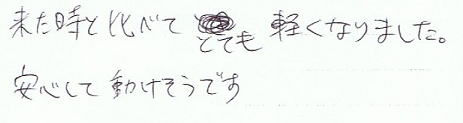 来た時と比べて とても 軽くなりました。
安心して動けそうです